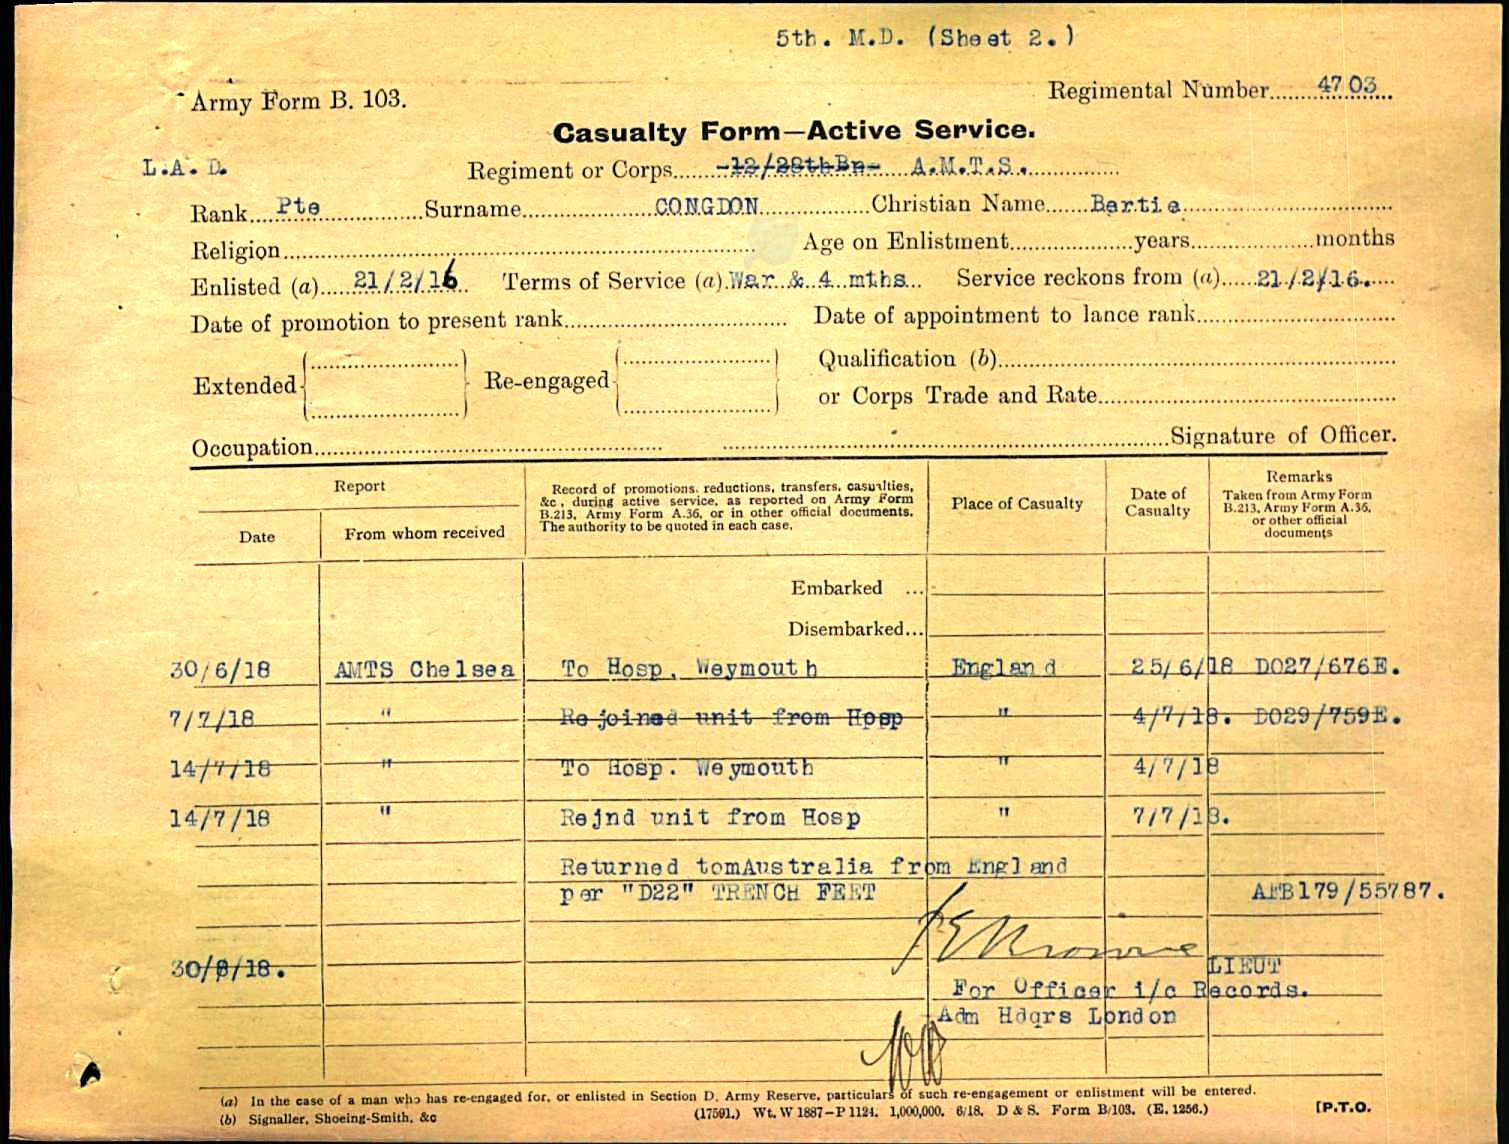 5th. M.D. (Sheet 2.)
Army Form B. 103.
Regimental Number 4703
Casualty Form—Active Service.
L.A.D. Regiment or Corps -12/28thBn- A.M.T.S.
Rank Pte Surname CONGDON Christian Name Bertie
Religion Age on Enlistment years months
Enlisted (a) 21/2/16 Terms of Service (a) War & 4 mths Service reckons from (a) 21/2/16.
Date of promotion to present rank Date of appointment to lance rank
Extended Re-engaged Qualification (b)
or Corps Trade and Rate
Occupation Signature of Officer.
Report
Date
From whom received
Record of promotions, reductions, transfers, casualties,
&c., during active service, as reported on Army Form
B.213, Army Form A.36, or in other official documents.
The authority to be quoted in each case.
Place of Casualty
Date of
Casualty
Remarks
Taken from Army Form
B.213, Army Form A.36,
or other official
documents
Embarked ...
Disembarked...
30/6/18 AMTS Chelsea To Hosp. Weymouth England 25/6/18 DO27/676E.
7/7/18 " Rejoined unit from Hosp " 4/7/18. DO29/759E.
14/7/18 " To Hosp. Weymouth " 4/7/18
14/7/18 " Rejnd unit from Hosp " 7/7/18.
Returned tomAustralia from England
per "D22" TRENCH FEET AFB179/55787.
30/8/18. LIEUT
For Officer i/c Records.
Adm Hdqrs London
(a) In the case of a man who has re-engaged for, or enlisted in Section D. Army Reserve, particulars of such re-engagement or enlistment will be entered.
(b) Signaller, Shoeing-Smith, &c (17591.) Wt. W 1887—P 1124. 1,000,000. 6/18. D & S. Form B/103. (E. 1256.) [P.T.O.